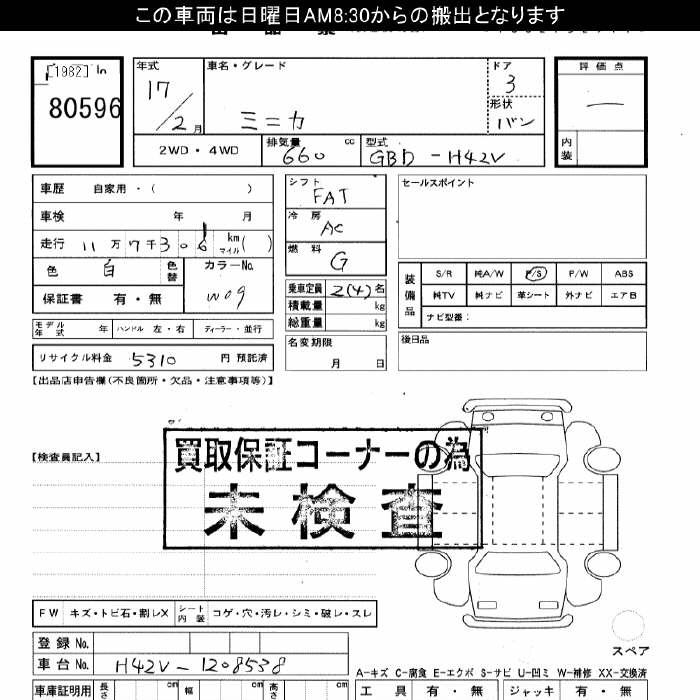 この車両は日曜日AM8:30からの搬出となります
[1982] In
80596
年式 17/2月
車名・グレード ミニカ
ドア 3
形状 バン
評価点 —
内装
2WD・4WD
排気量 660 cc
型式 GBD-H42V
車歴 自家用・( )
車検 年 月
走行 11万7千306 km マイル ( )
色 白 色替
カラーNo. W09
保証書 有・無
モデル年式 年 ハンドル 左・右 ディーラー・並行
リサイクル料金 5310 円 預託済
シフト FAT
冷房 AC
燃料 G
乗車定員 2(4)名
積載量 kg
総重量 kg
名変期限 月 日
セールスポイント
装備品
S/R 純A/W P/S P/W ABS
純TV 純ナビ 革シート 外ナビ エアB
ナビ型番:
後日品
【出品店申告欄(不良箇所・欠品・注意事項等)】
【検査員記入】
買取保証コーナーの為
未検査
FW キズ・トビ石・割レX シート内装 コゲ・穴・汚レ・シミ・破レ・スレ
スペア
登録No.
車台No. H42V-1208538
A-キズ C-腐食 E-エクボ S-サビ U-凹ミ W-補修 XX-交換済
車庫証明用 長さ cm 幅 cm 高さ cm
工具 有・無 ジャッキ 有・無